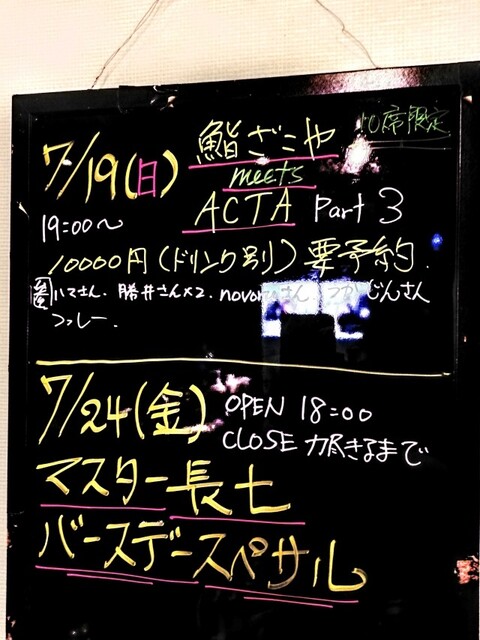 10席限定
7/19(日) 鮨ざこや
meets
ACTA Part 3
19:00〜
10000円(ドリンク別)要予約.
ハマさん. 勝井さん×2. novoさん つかじんさん
コッシー.
7/24(金) OPEN 18:00
CLOSE 力尽きるまで
マスター長七
バースデースペサル